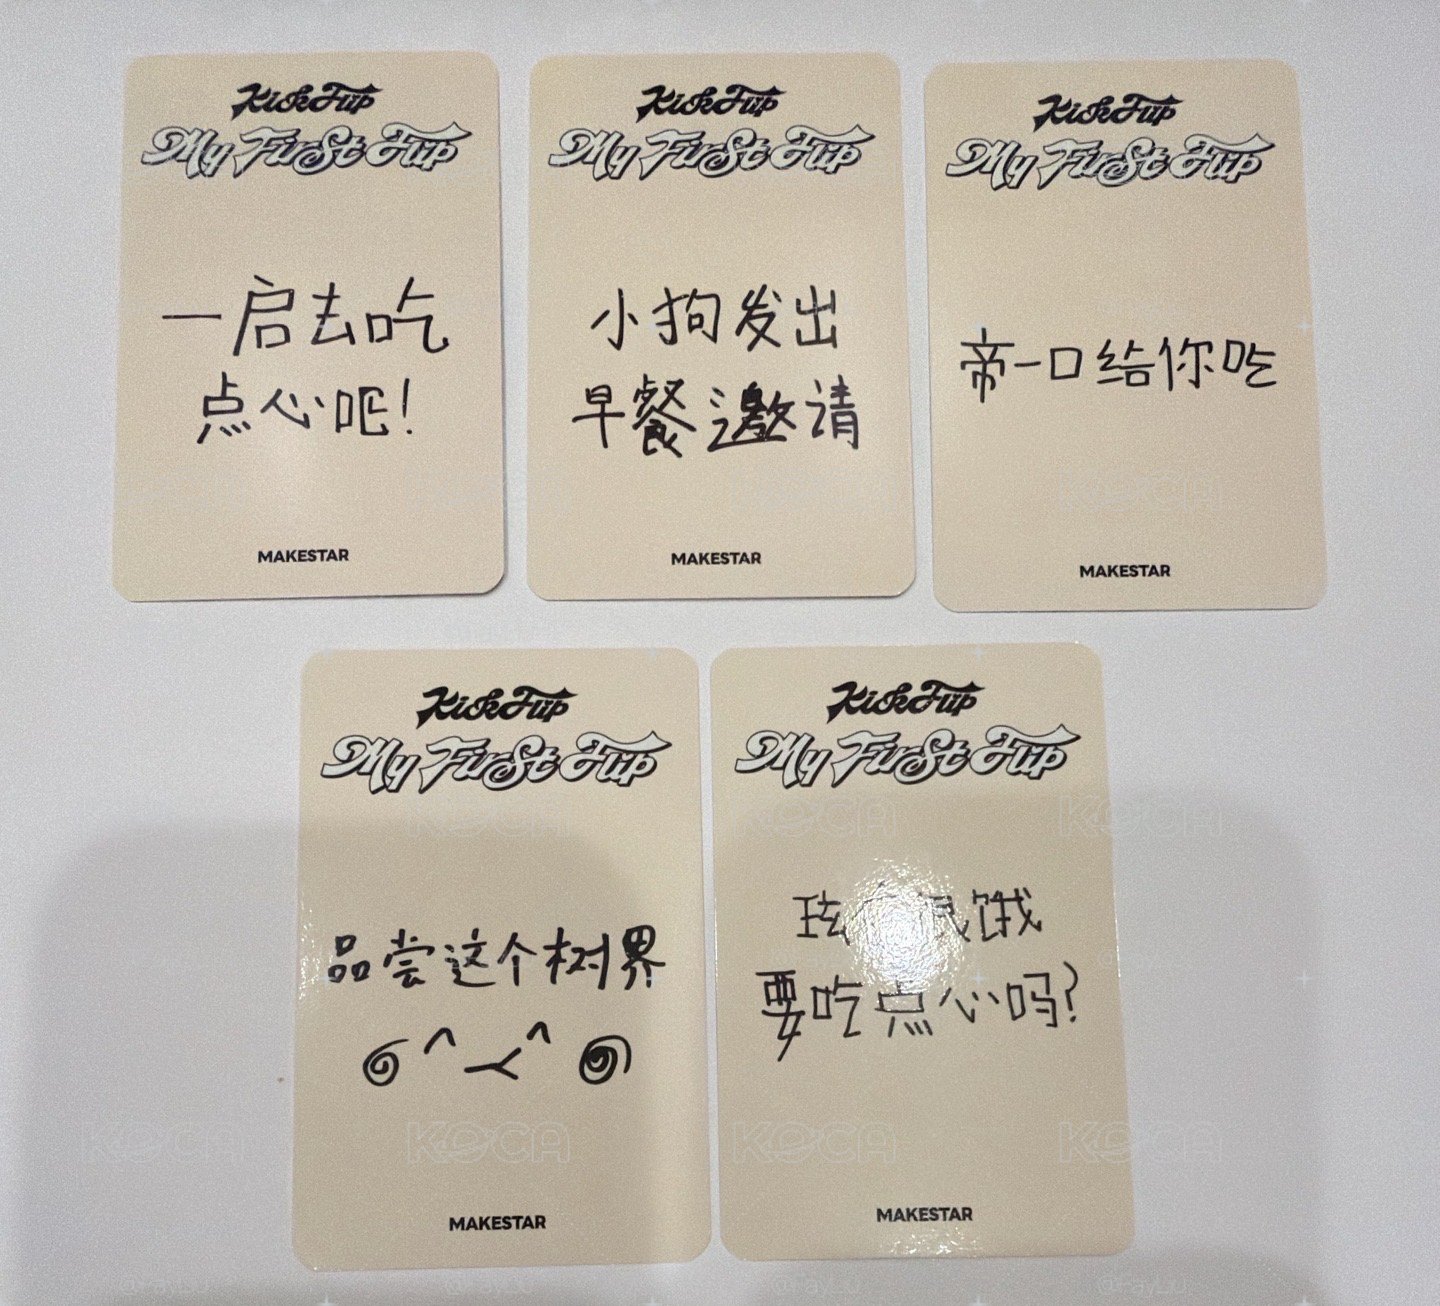 KickFlip
My First Flip
一启去吃
点心吧!
MAKESTAR
KickFlip
My First Flip
小狗发出
早餐邀请
MAKESTAR
KickFlip
My First Flip
帝一口给你吃
MAKESTAR
KickFlip
My First Flip
品尝这个树界
MAKESTAR
KickFlip
My First Flip
玹 饿
要吃点心吗?
MAKESTAR
KOCA
KOCA
KOCA
KOCA
KOCA
KOCA
KOCA
KOCA
@FayLu